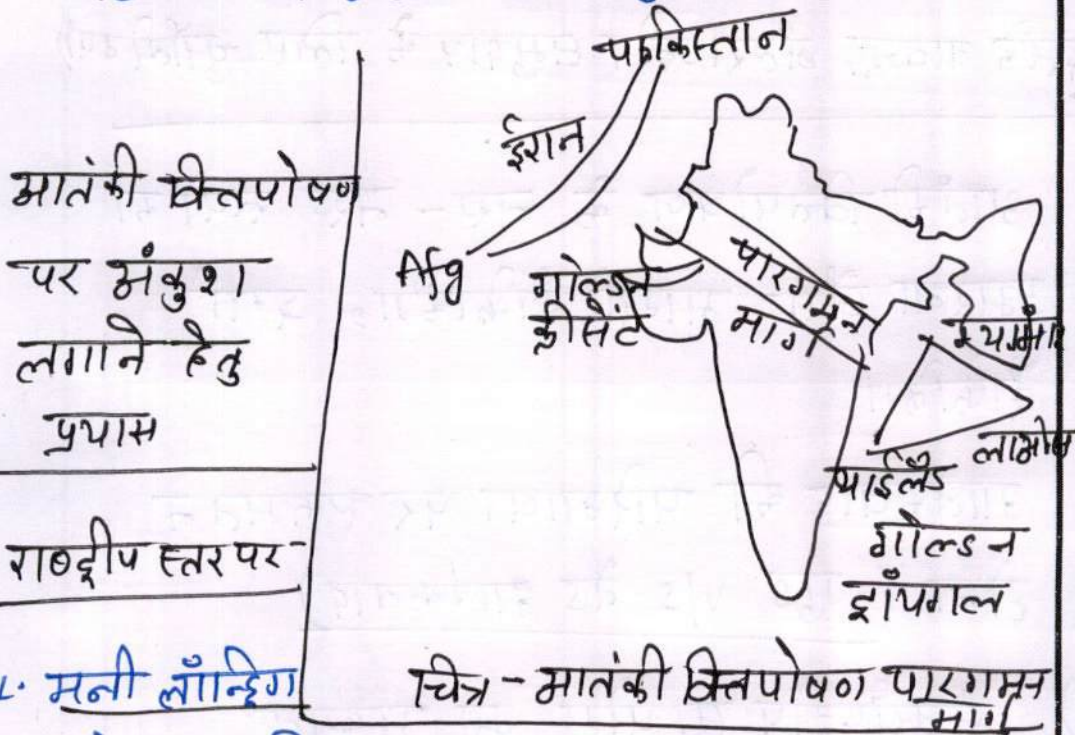 आतंकी वित्तपोषण
पर अंकुश
लगाने हेतु
प्रयास
राष्ट्रीय स्तर पर-
1. मनी लॉन्ड्रिंग
पाकिस्तान
ईरान
Afg
गोल्डन
क्रीसेंट
पारगमन
मार्ग
म्यांमार
लाओस
थाईलैंड
गोल्डन
ट्रॉयंगल
चित्र - आतंकी वित्तपोषण पारगमन
मार्ग